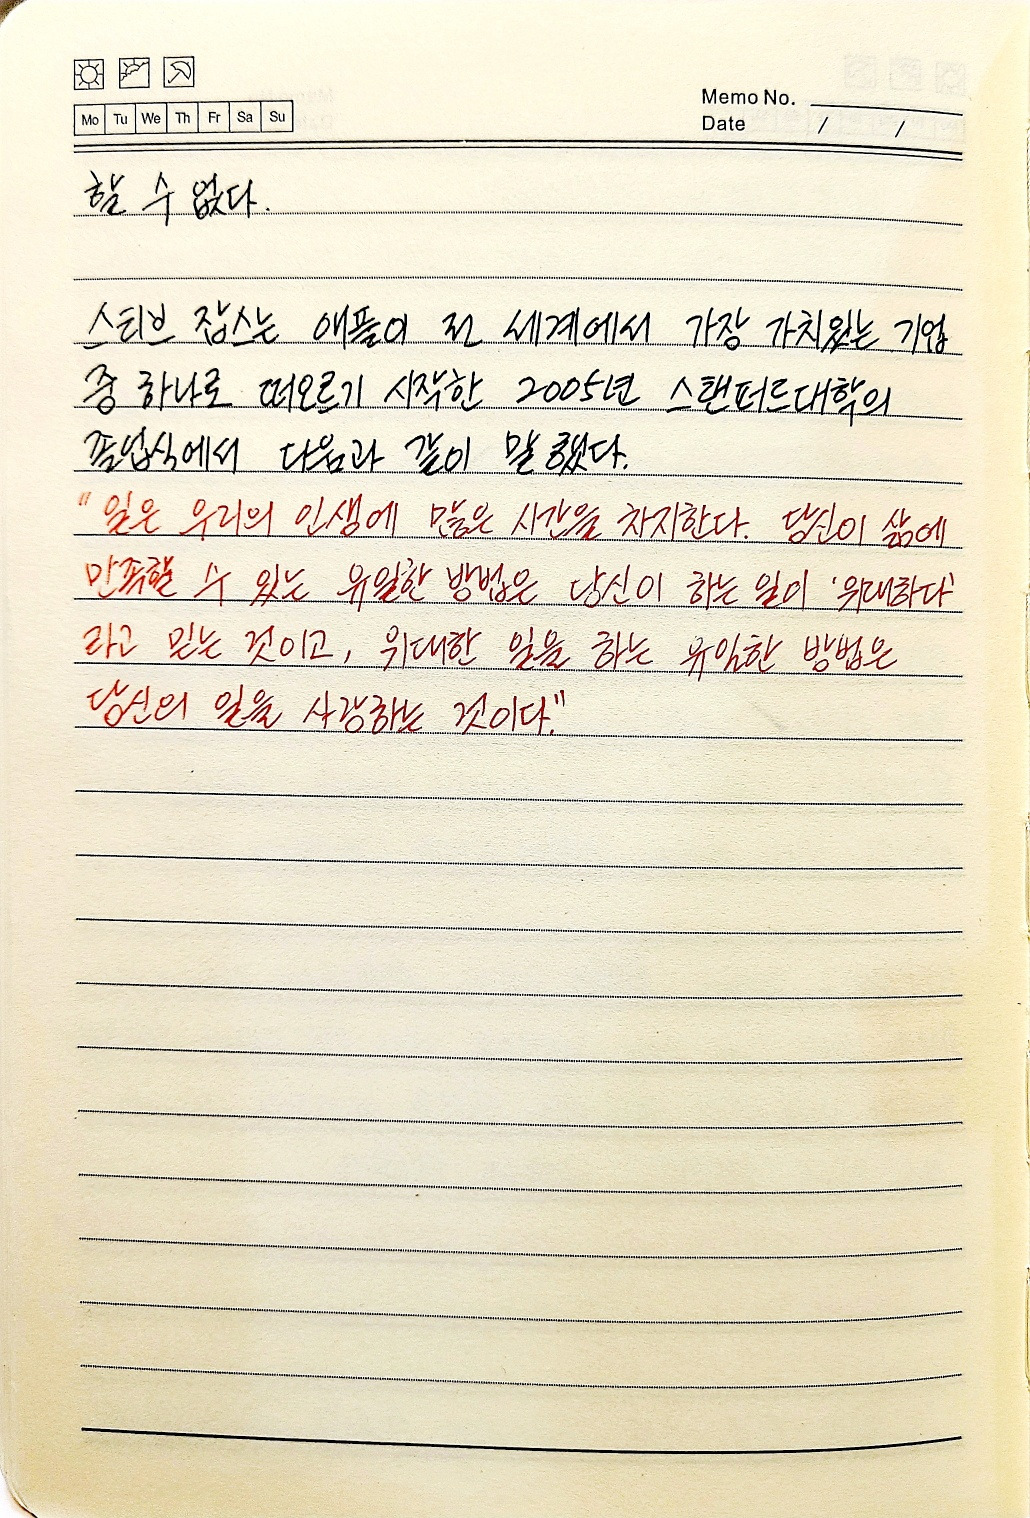 Mo Tu We Th Fr Sa Su
Memo No.
Date / /
할 수 없다.
스티브 잡스는 애플이 전 세계에서 가장 가치있는 기업
중 하나로 떠오르기 시작한 2005년 스탠퍼드대학의
졸업식에서 다음과 같이 말했다.
"일은 우리의 인생에 많은 시간을 차지한다. 당신이 삶에
만족할 수 있는 유일한 방법은 당신이 하는 일이 '위대하다'
라고 믿는 것이고, 위대한 일을 하는 유일한 방법은
당신의 일을 사랑하는 것이다."